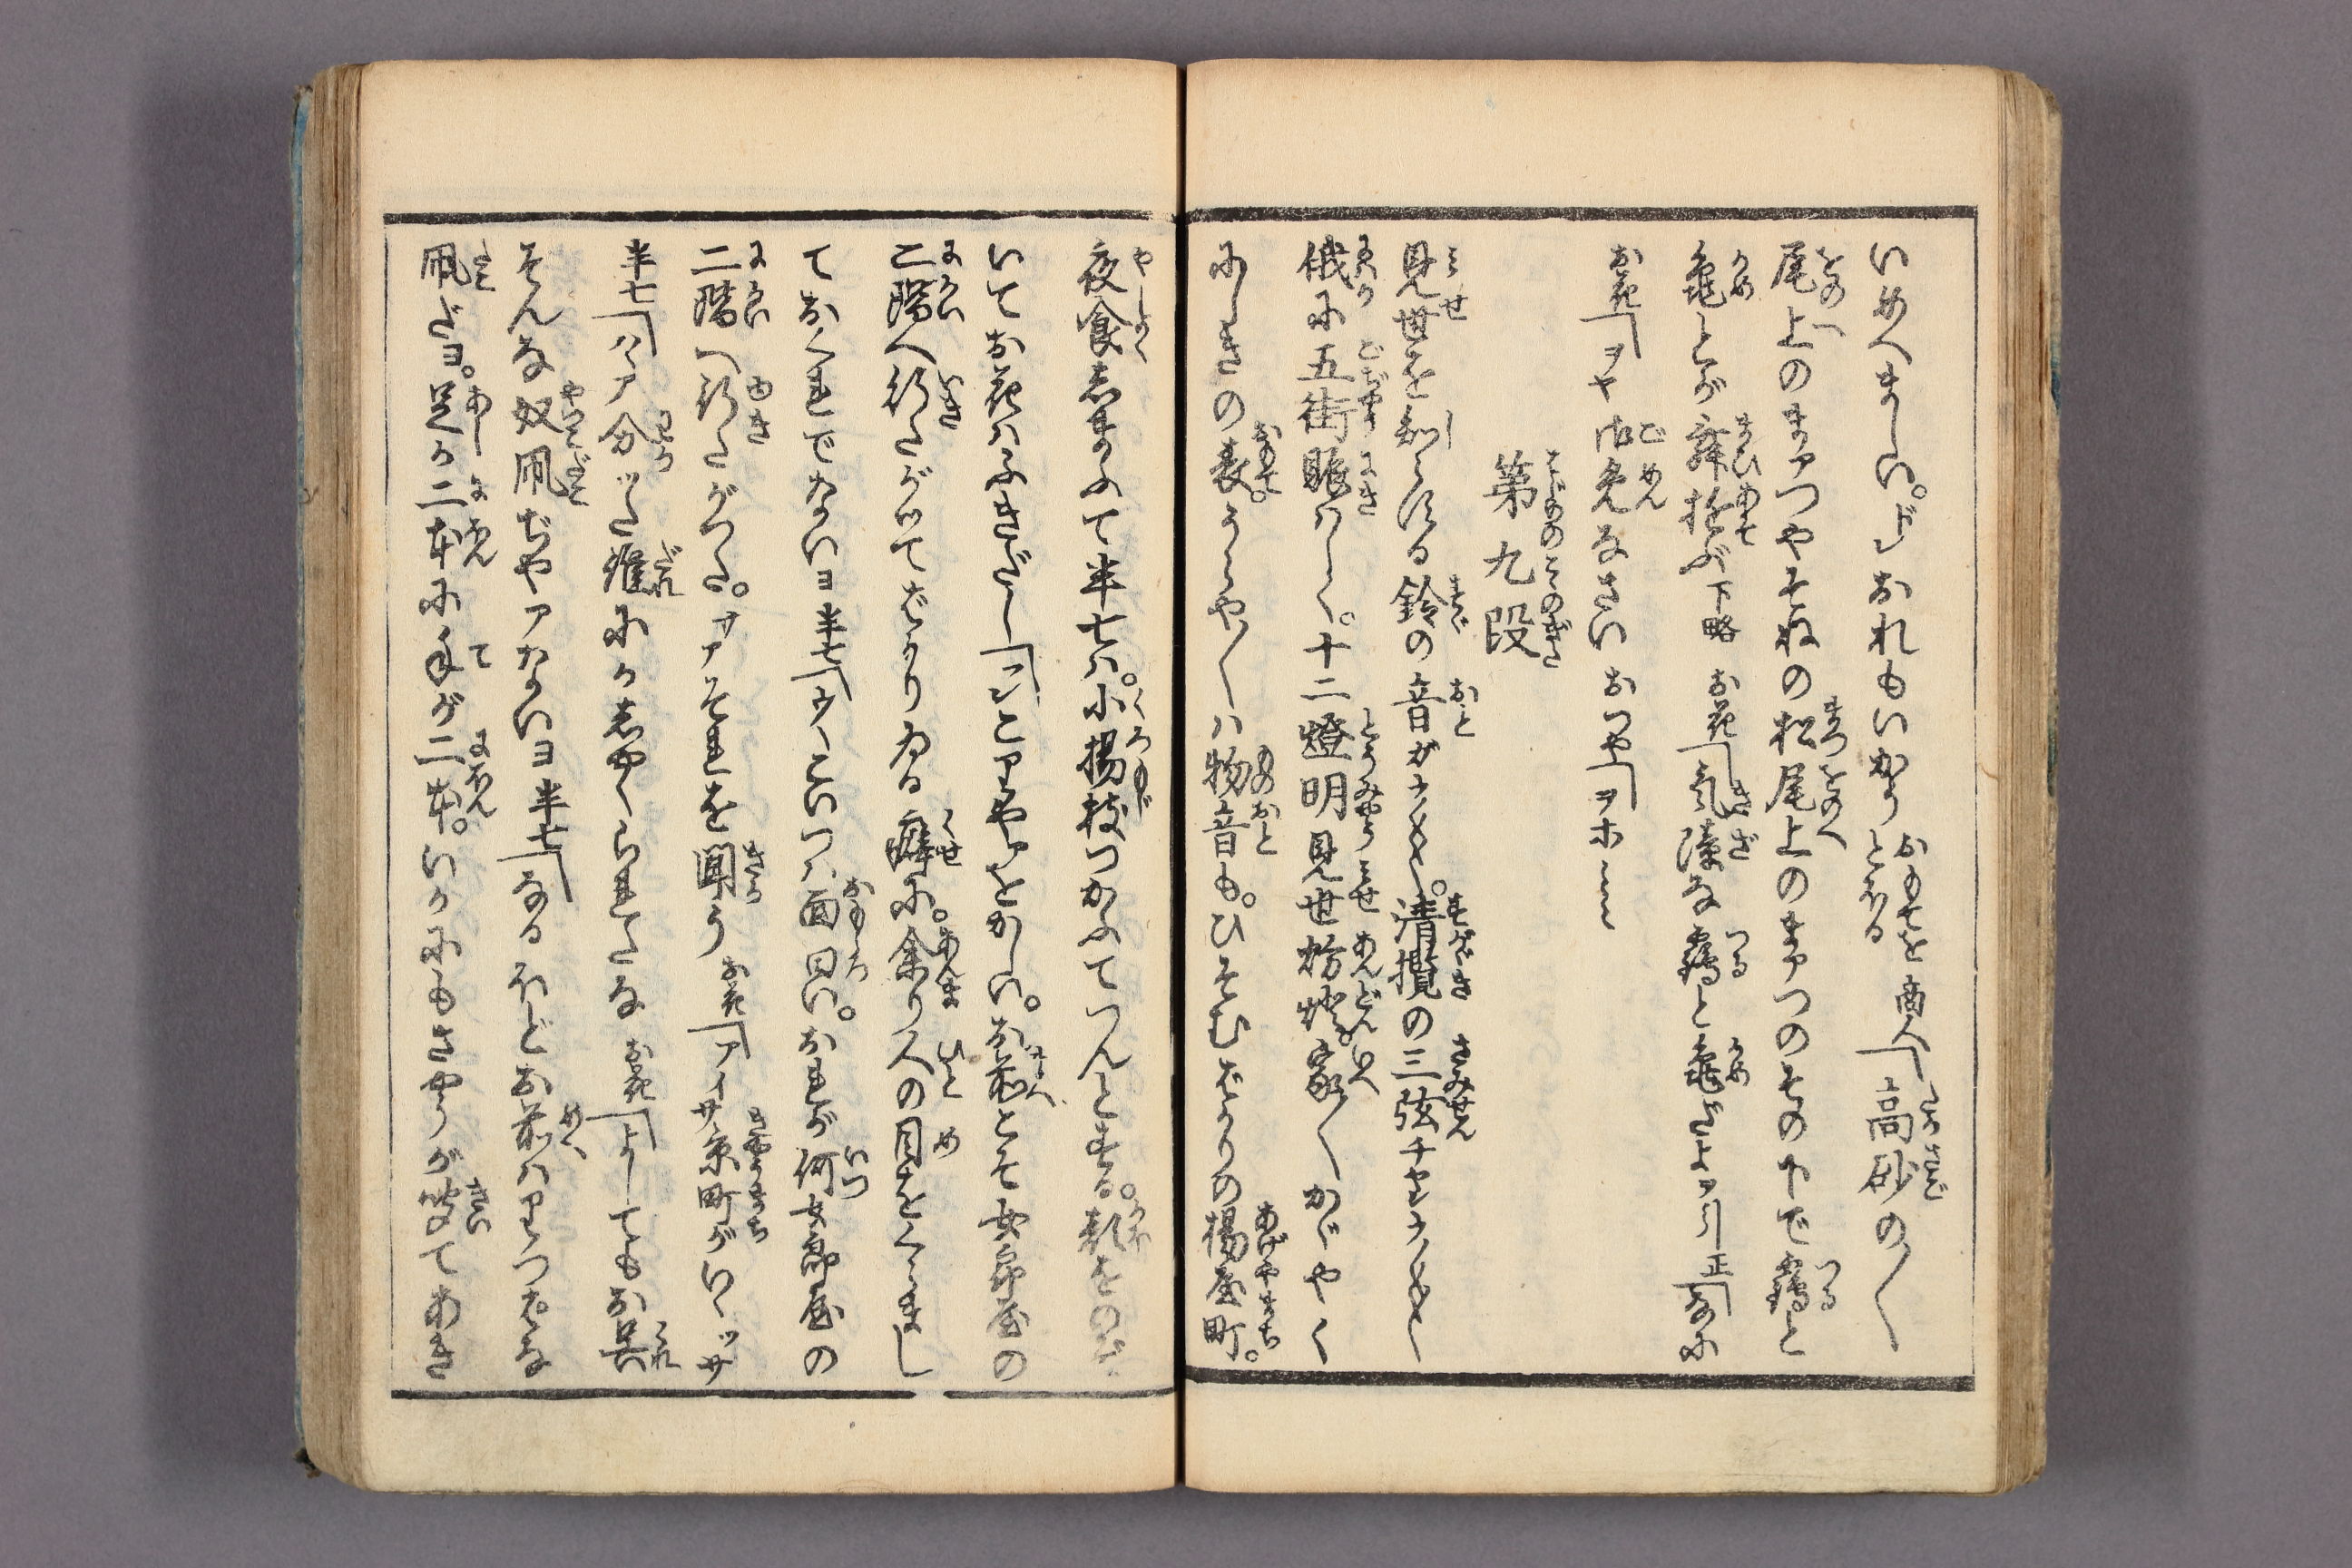 いめへましい。ドレおれもいかうとおる おもてを商人「高砂の〳〵
尾上のまアつやそねの松尾上のまアつのその下で鶴と
亀とが舞遊ぶ下略 お花「気障な鶴と亀だよヲ引 正「なに
お花「ヲヤ御免なさい おつや「ヲホヽヽヽ
第九段
見世を知らする鈴の音がラ〳〵。清攬の三弦チヤンラン〳〵
俄に五街賑はしく。十二燈明見世行燈。家〳〵かゞやく
にしきの表。うらや〳〵は物音も。ひそむばかりの揚屋町。
夜食しまふて半七は。小楊枝つかふてつんとする。顔をのぞ
いてお花はふきだし「フンとりやアをかしい。お前こそ女郎屋の
二階へ行たがつてばかりゐる癖に。余り人の目をくらまし
ておくれでないヨ 半七「ウヽこいつは面白い。おれが何女郎屋の
二階へ行たがつた。サアそれを聞う お花「アイサ京町がいゝツサ
半七「ハヽア分ツた 誰にかしやくられたな お花「よしてもお呉
そんな奴凧ぢやアないヨ 半七「なるほどお前はりつぱな
凧だヨ。足が二本に手が二本。いかにもさやうが聞てあき